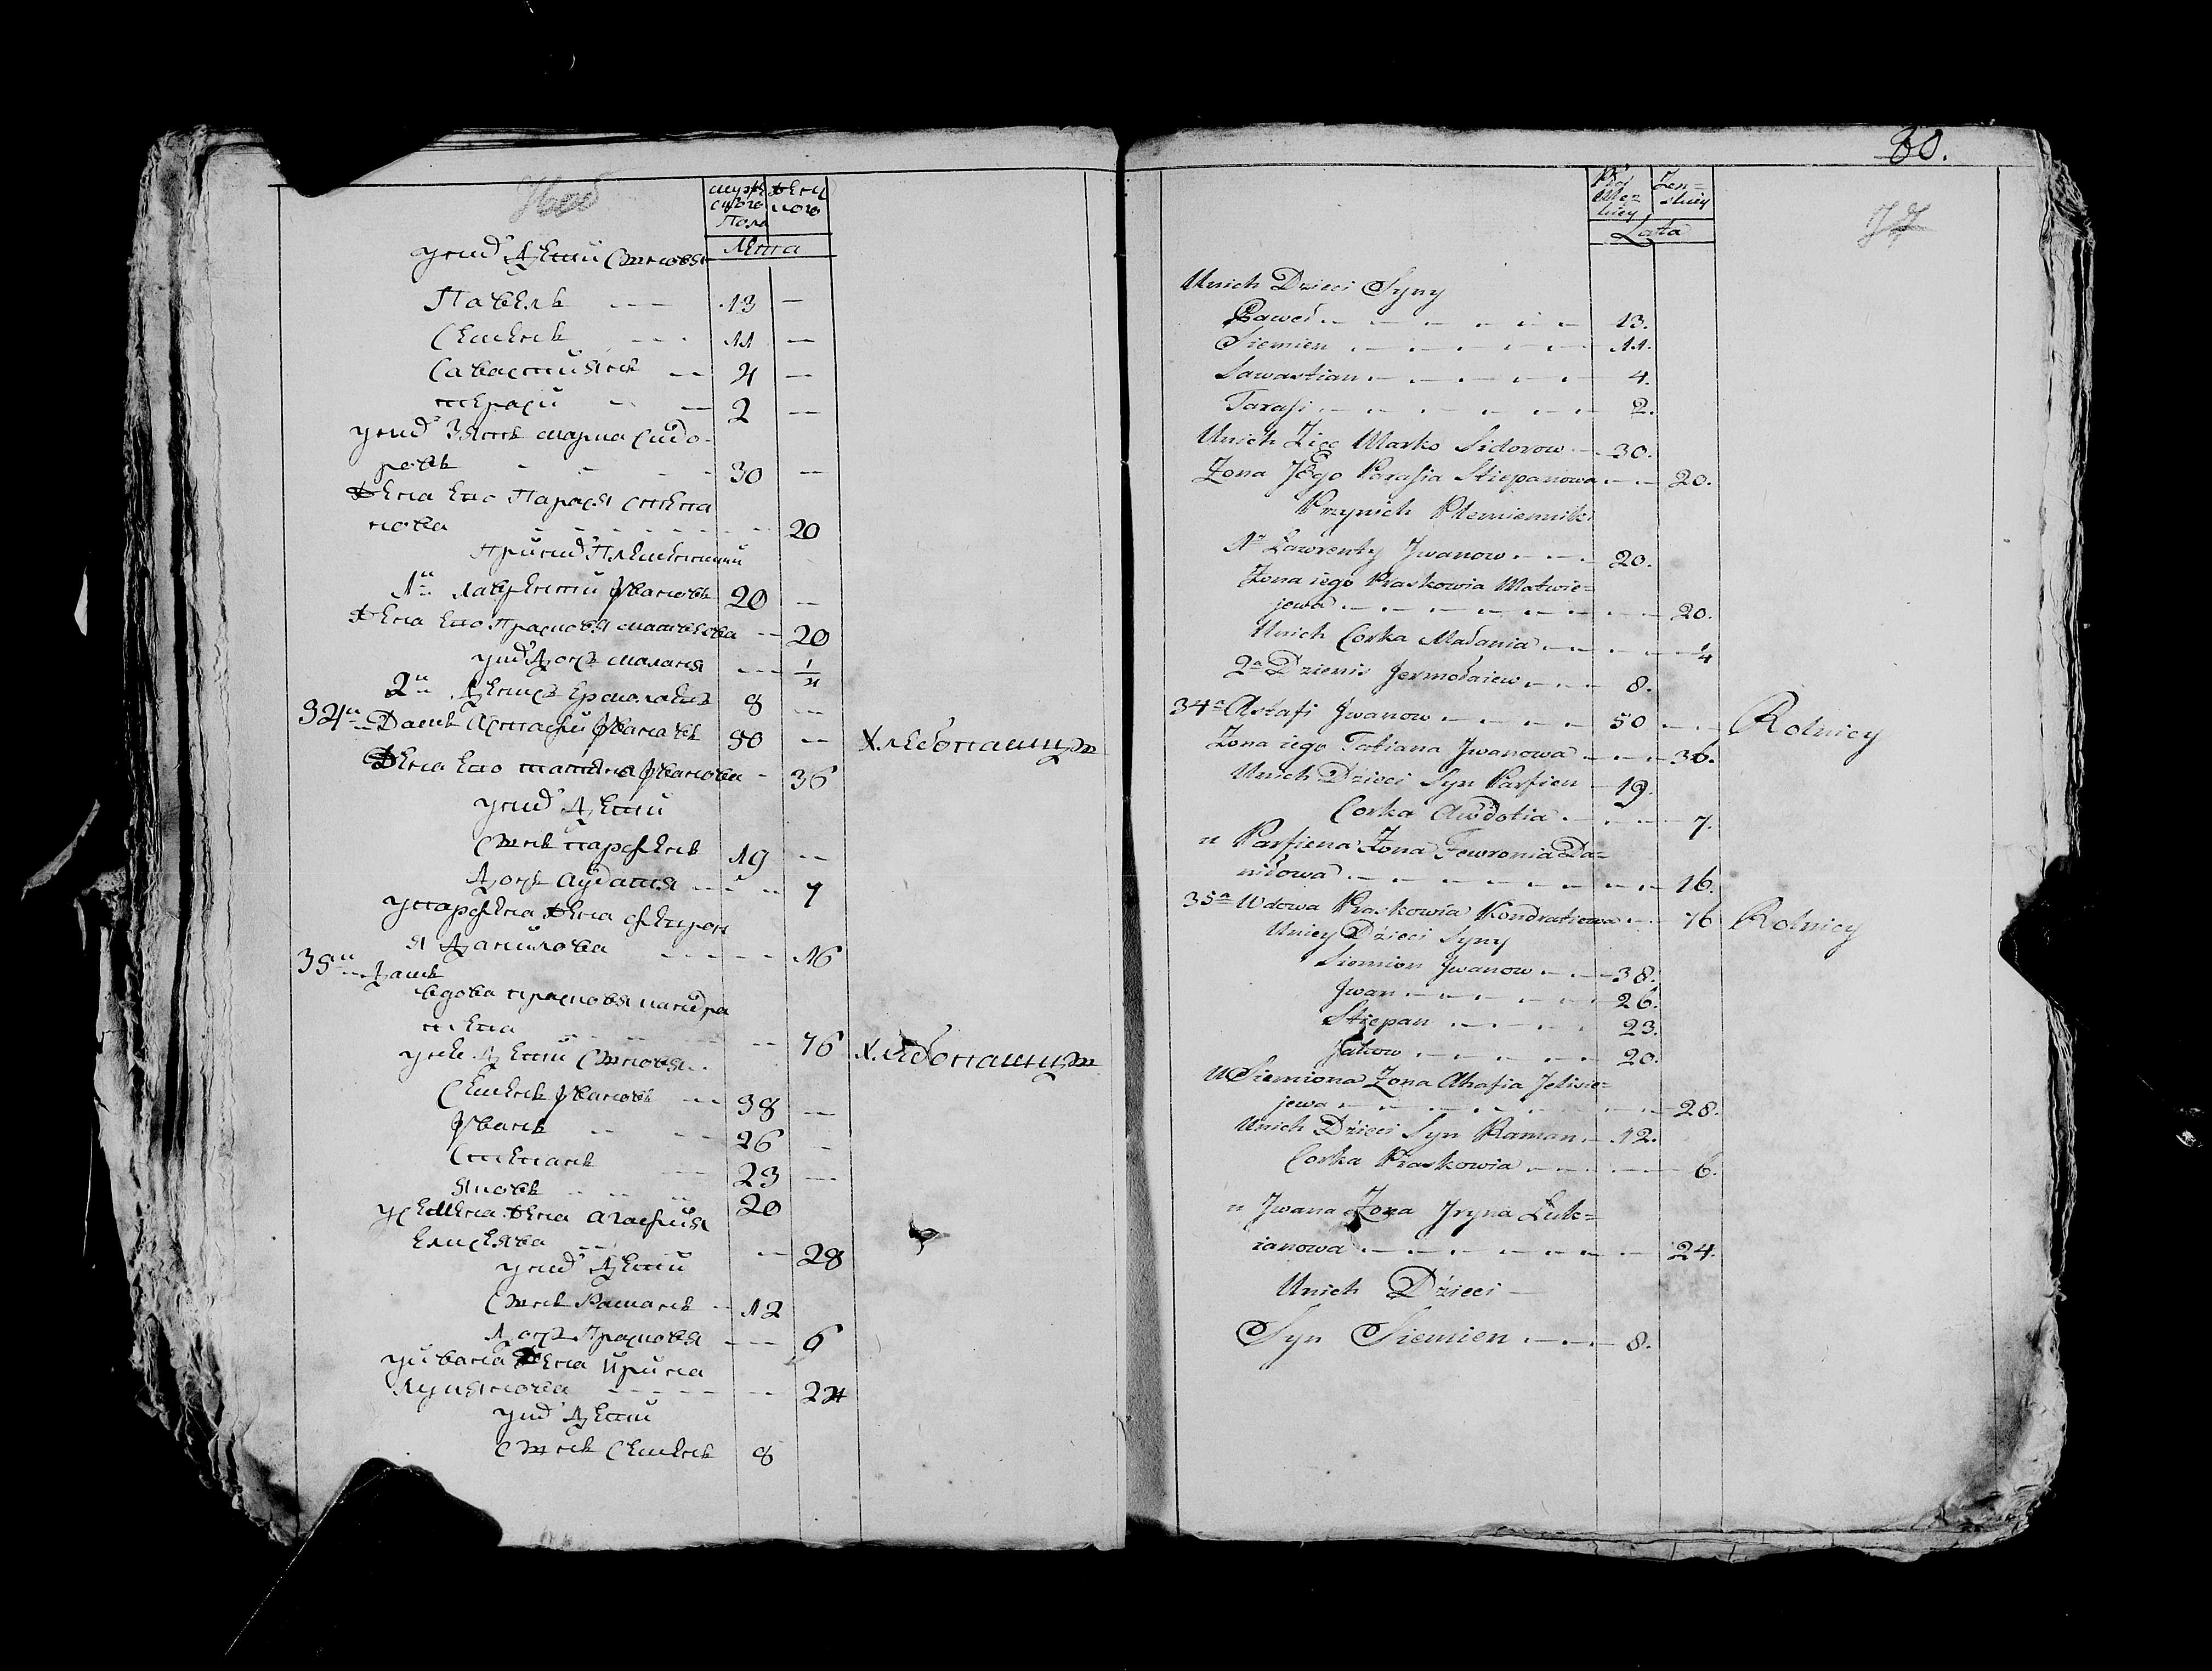 мужеска пола
женскаго
лѣта
унид дѣти сыновя
Павелъ --- 13 --
Семенъ --- 11 --
Савастиянъ -- 4 --
тераси -- 2 --
унид зять марка сидо-
ровъ - - 30 --
жена его Парася степа
нова - - - 20
При нид Племенники
1й лаврентии Ивановъ 20 --
жена его Прасковя матвеева -- 20
унид дочь маланя --- 1/4
2й денисъ ермолаевъ 8 --
34й Дашъ Астафи Ивановъ 50 -- Хлебопашцы
жена его татяна Иванова - 36
унид дѣти
сынъ парфенъ 19 --
дочь Аудатя --- 7
упарфена жена февронь
я данилова - - - 16
35й дашъ
вдова прасковя кандра
тева -- 76 Хлебопашцы
уней дѣти сыновя
Семенъ Ивановъ -- 38 --
Иванъ -- 26 --
Степанъ -- 23 --
яковъ -- 20
у Семена жена агафия
Елисеява -- 28
унид дѣти
сынъ Раманъ - 12
дочь Прасковя --- 6
уивана жена ирина
лукянова --- 24
унид дѣти
сынъ Семенъ 8
80.
Płci Męzkiey
Żenskiey
Lata
Unich Dzieci Syny
Paweł 13.
Siemien 11.
Sawastian 4.
Tarasi 2.
Unich Zięc Marko Sidorow 30.
Zona Jego Parasia Stiepanowa 20.
Przynich Plemienniki
1n Ławrenty Jwanow 20.
Zona iego Praskowia Matwie=
jewa 20.
Unich Corka Małania 1/4
2a Dzienis Jermołaiew 8.
34a Astafi Jwanow 50 Rolnicy
Zona iego Tatiana Jwanowa 36.
Unich Dzieci Syn Parfien 19.
Corka Awdotia 7.
u Parfiena Zona Fewronia Da=
niłowa 16.
35a Wdowa Praskowia Kondratiewa 76 Rolnicy
Uniey Dzieci Syny
Siemion Jwanow 38.
Jwan 26.
Stiepan 23.
Jakow 20.
U Siemiona Zona Ahafia Jelisie=
jewa 28.
Unich Dzieci Syn Raman 12.
Corka Praskowia 6.
u Jwana Zona Jryna Łuk=
ianowa 24.
Unich Dzieci
Syn Siemien 8.